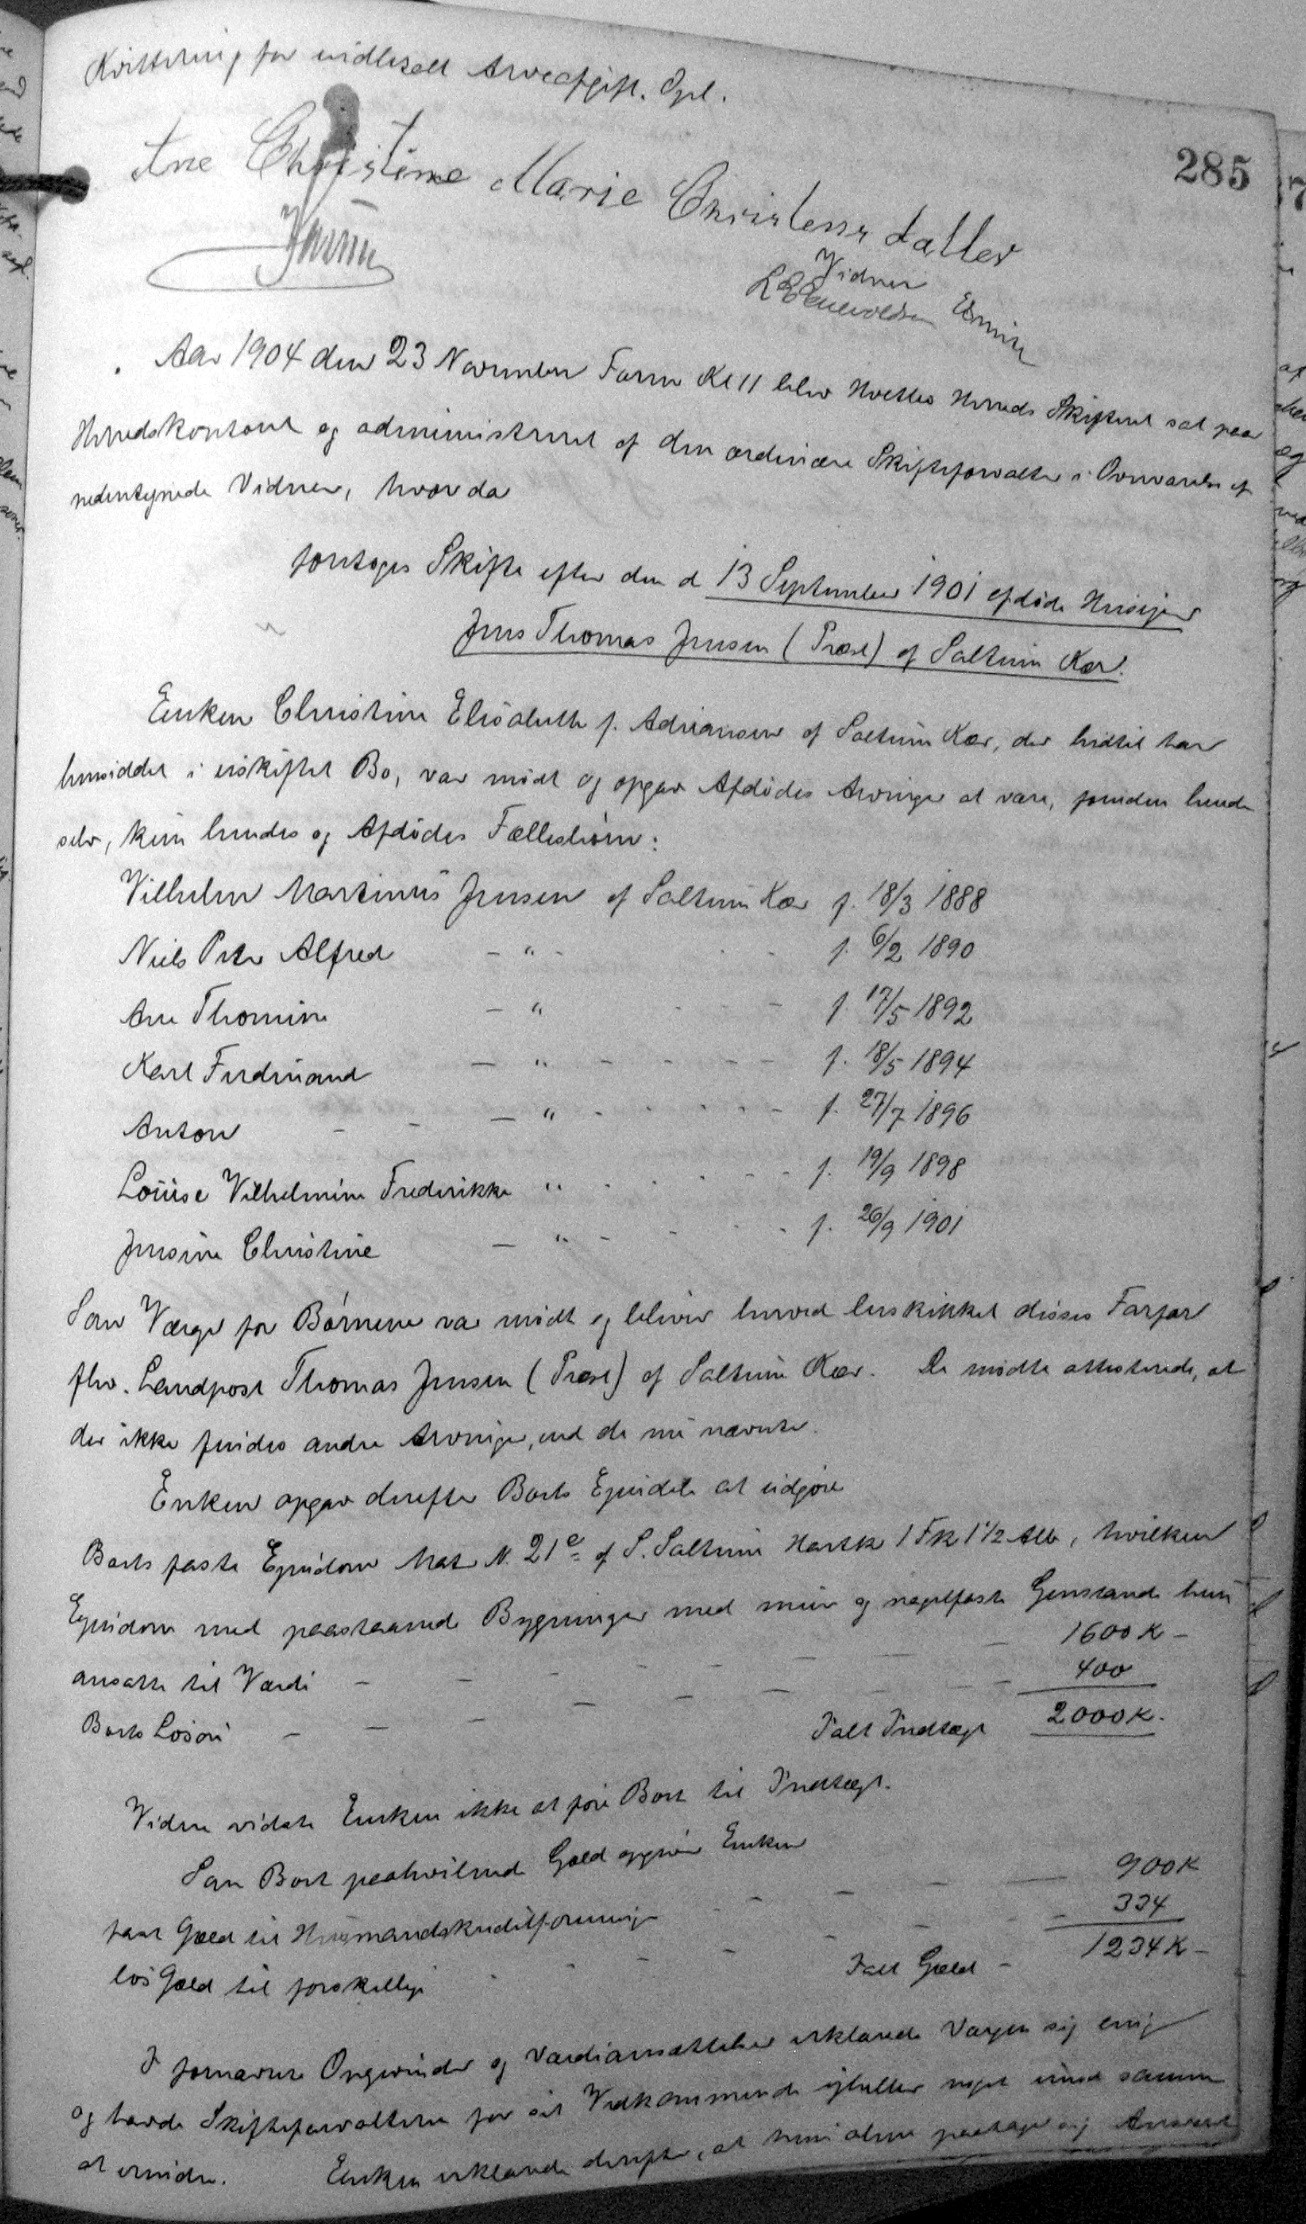 Kvittering for indbetalt Arveafgift. Opl.
285
Ane Christine Marie Christens datter
Vidner
Aar 1904 den 23 November Form Kl 11 blev Hvetbo Herreds Skifteret sat paa
Herredskontoret og administreret af den ordinære Skifteforvalter i Overværelse af
nedentegnede Vidner, hvor da
foretoges Skifte efter den d 13 September 1901 afdøde Husejer
Jens Thomas Jensen (Præst) af Saltum Kær.
Enken Christine Elisabeth f. Adriansen af Saltum Kær, der hidtil har
hensiddet i uskiftet Bo, var mødt og opgav Afdødes Arvinger at være, foruden hende
selv, kun hendes og Afdødes Fællesbørn:
Vilhelm Martinus Jensen af Saltum Kær f. 18/3 1888
Niels Peter Alfred - " - f. 6/2 1890
Ane Thomine - " - f. 17/5 1892
Karl Ferdinand - " - f. 18/5 1894
Anton - " - f. 27/7 1896
Louise Vilhelmine Frederikke " - f. 19/9 1898
Jensine Christine - " - f. 26/9 1901
Som Værge for Børnene var mødt og bliver herved beskikket disses Farfar
fhv. Landpost Thomas Jensen (Præst) af Saltum Kær. De mødte attesterede, at
der ikke findes andre Arvinger, end de nu nævnte.
Enken opgav derefter Boets Ejendele at udgjøre
Boets faste Ejendom Mat N. 21e af S. Saltum Hartk 1 Fk 1 1/2 Alb, hvilken
Ejendom med paastaaende Bygninger med mur og nagelfaste Genstande hun
ansatte til Værdi - - - 1600 K -
Boets Løsøre - - - 400
Ialt Indtægt 2000 K.
Videre vidste Enken ikke at føre Boet til Indtægt.
Som Boet paahvilende Gæld opgiver Enken
fast Gæld til Husmandskreditforeningen - - - 900 K
løs Gæld til forskellige - - - 334
Ialt Gæld - 1234 K -
I fornævnte Opgivender og Værdiansættelser erklærede Værgen sig enig
og havde Skifteforvalteren for sit Vedkommende ejheller noget imod samme
at erindre. Enken erklærede derefter, at hun alene paatager sig Ansvaret